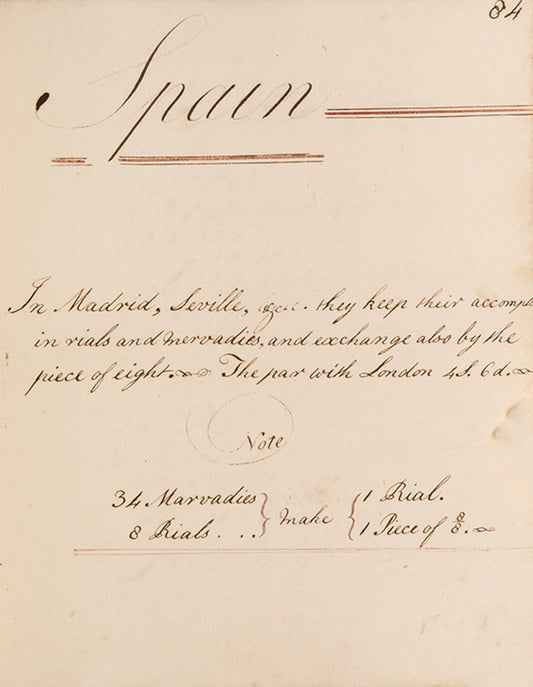 84
Spain
In Madrid, Seville, &c. they keep their accompts
in rials and mervadies, and exchange also by the
piece of eight. The par with London 4S. 6d.
Note
34 Marvadies } make { 1 Rial.
8 Rials. . . } make { 1 Piece of 8/8.